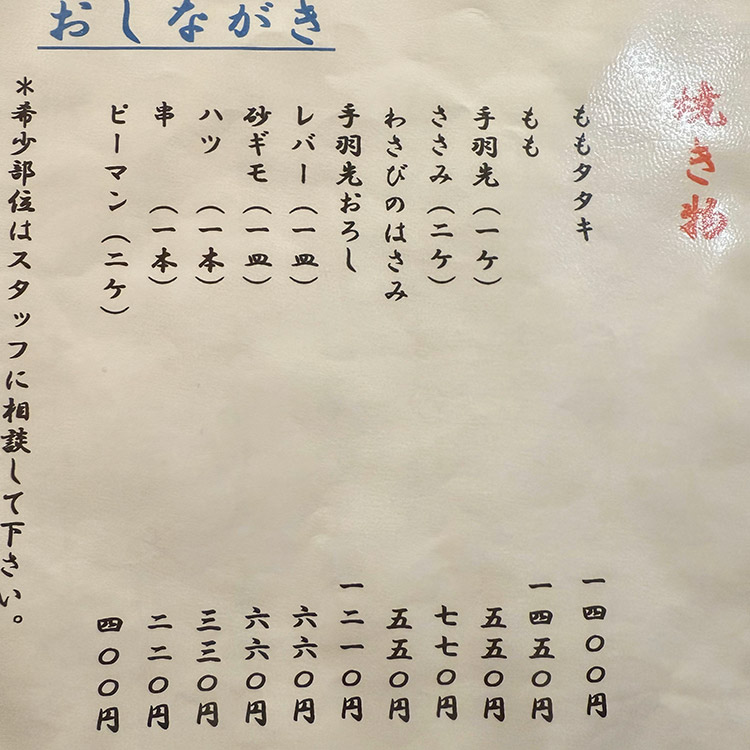 おしながき
焼き物
ももタタキ 一四〇〇円
もも 一四五〇円
手羽先(一ケ) 五五〇円
ささみ(二ケ) 七七〇円
わさびのはさみ 五五〇円
手羽先おろし 一二一〇円
レバー(一皿) 六六〇円
砂ギモ(一皿) 六六〇円
ハツ(一本) 三三〇円
串(一本) 二二〇円
ピーマン(二ケ) 四〇〇円
*希少部位はスタッフに相談して下さい。